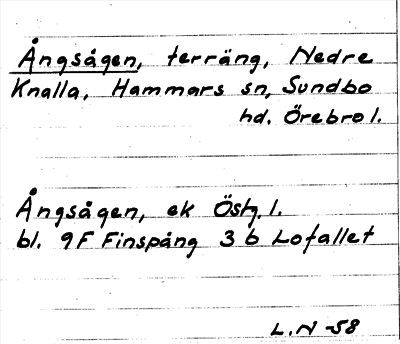 Ångsågen, terräng, Nedre
Knalla, Hammars sn, Sundbo
hd. Örebro l.
Ångsågen, ek Östg. l.
bl. 9F Finspång 3 b Lofallet
L. N -58